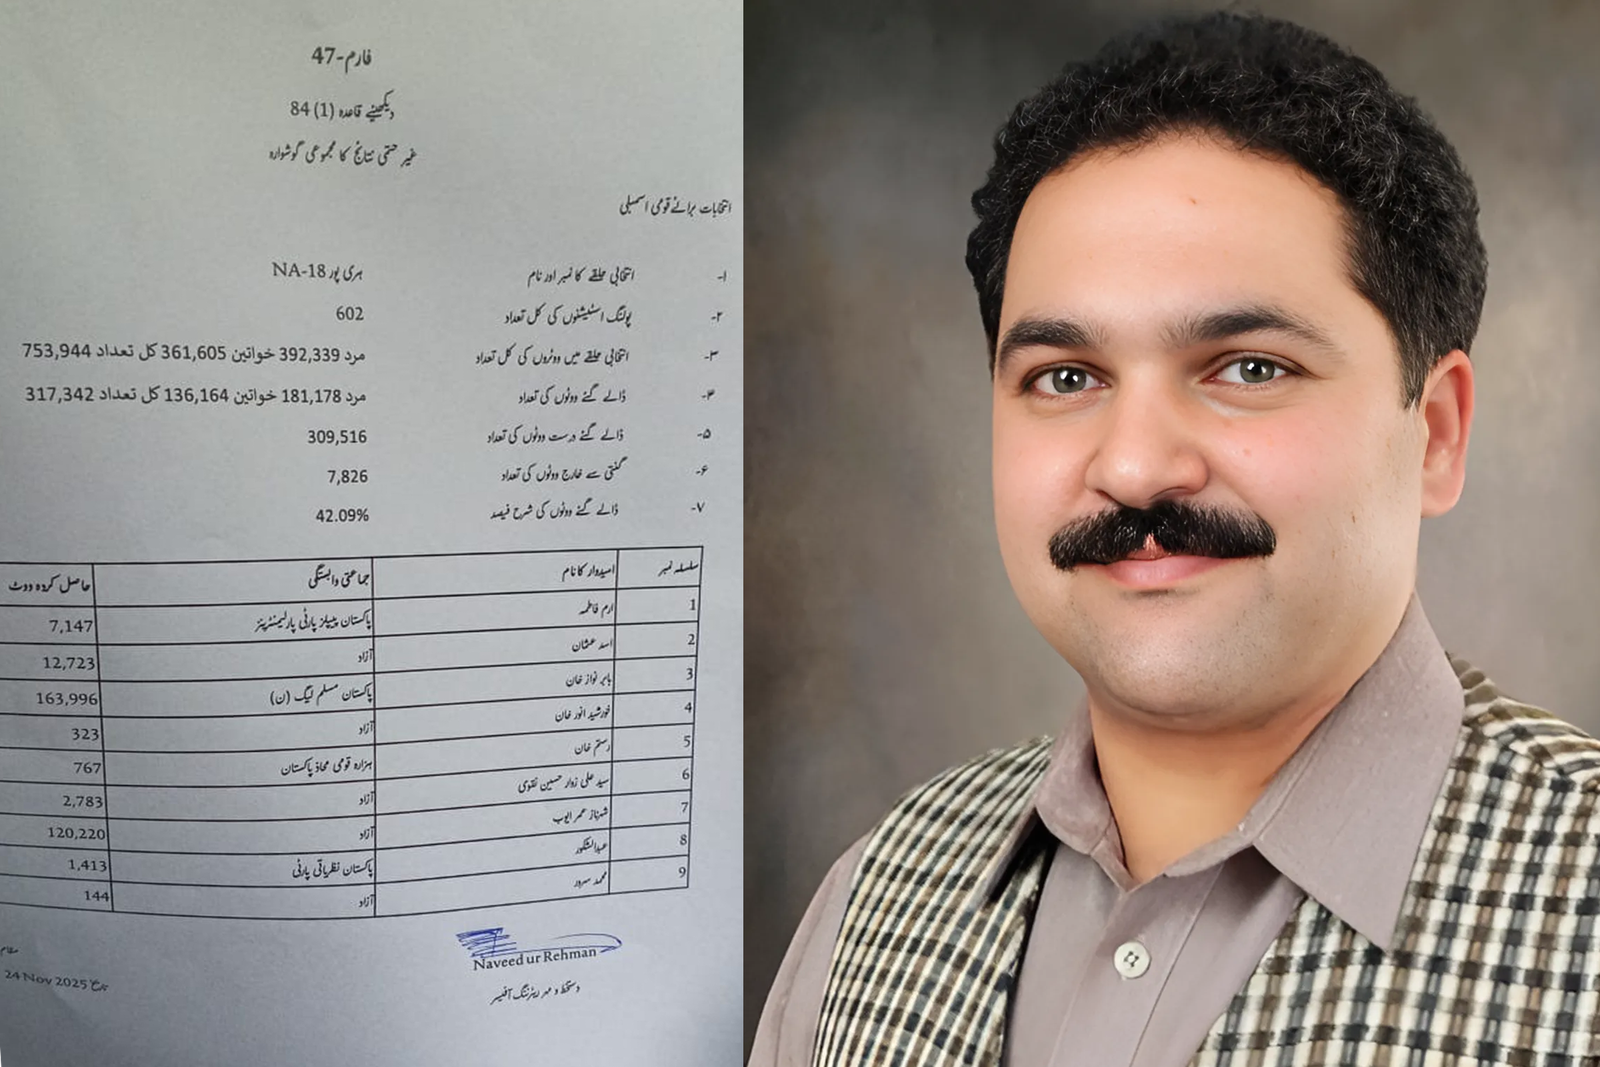 فارم-47
دیکھیئے قاعدہ (1) 84
غیر حتمی نتائج کا مجموعی گوشوارہ
انتخابات برائے قومی اسمبلی
۱- انتخابی حلقے کا نمبر اور نام NA-18 ہری پور
۲- پولنگ اسٹیشنوں کی کل تعداد 602
۳- انتخابی حلقے میں ووٹروں کی کل تعداد مرد 392,339 خواتین 361,605 کل تعداد 753,944
۴- ڈالے گئے ووٹوں کی تعداد مرد 181,178 خواتین 136,164 کل تعداد 317,342
۵- ڈالے گئے درست ووٹوں کی تعداد 309,516
۶- گنتی سے خارج ووٹوں کی تعداد 7,826
۷- ڈالے گئے ووٹوں کی شرح فیصد 42.09%
سلسلہ نمبر امیدوار کا نام جماعتی وابستگی حاصل کردہ ووٹ
1 ارم فاطمہ پاکستان پیپلز پارٹی پارلیمنٹرینز 7,147
2 اسد عثمان آزاد 12,723
3 بابر نواز خان پاکستان مسلم لیگ (ن) 163,996
4 خورشید انور خان آزاد 323
5 رستم خان ہزارہ قومی محاذ پاکستان 767
6 سید علی زوار حسین نقوی آزاد 2,783
7 شہرناز عمر ایوب آزاد 120,220
8 عبدالشکور پاکستان نظریاتی پارٹی 1,413
9 محمد سرور آزاد 144
Naveed ur Rehman
دستخط و مہر ریٹرننگ آفیسر
مقام
تاریخ 24 Nov 2025